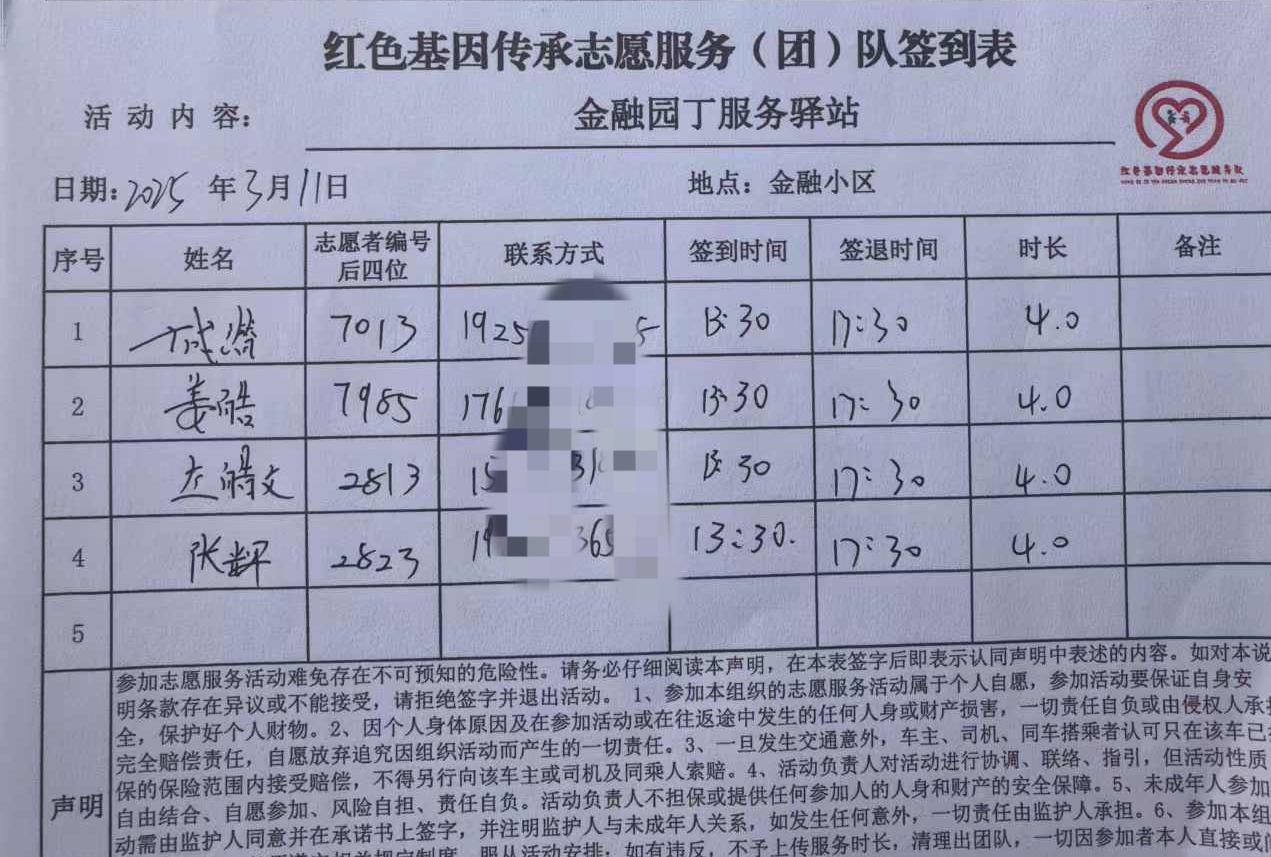 红色基因传承志愿服务（团）队签到表
活动内容： 金融园丁服务驿站
红色基因传承志愿服务队
日期：2025年3月11日 地点：金融小区
序号 姓名 志愿者编号后四位 联系方式 签到时间 签退时间 时长 备注
1 成潜 7013 1925 5 13:30 17:30 4.0
2 姜皓 7985 176 13:30 17:30 4.0
3 左皓文 2813 15 318 13:30 17:30 4.0
4 张辉 2823 19 365 13:30. 17:30 4.0
5
声明
参加志愿服务活动难免存在不可预知的危险性。请务必仔细阅读本声明，在本表签字后即表示认同声明中表述的内容。如对本说
明条款存在异议或不能接受，请拒绝签字并退出活动。 1、参加本组织的志愿服务活动属于个人自愿，参加活动要保证自身安
全，保护好个人财物。2、因个人身体原因及在参加活动或在往返途中发生的任何人身或财产损害，一切责任自负或由侵权人承担
完全赔偿责任，自愿放弃追究因组织活动而产生的一切责任。3、一旦发生交通意外，车主、司机、同车搭乘者认可只在该车已投
保的保险范围内接受赔偿，不得另行向该车主或司机及同乘人索赔。4、活动负责人对活动进行协调、联络、指引，但活动性质
自由结合、自愿参加、风险自担、责任自负。活动负责人不担保或提供任何参加人的人身和财产的安全保障。5、未成年人参加
动需由监护人同意并在承诺书上签字，并注明监护人与未成年人关系，如发生任何意外，一切责任由监护人承担。6、参加本组
相关规定制度，服从活动安排；如有违反，不予上传服务时长，清理出团队，一切因参加者本人直接或间